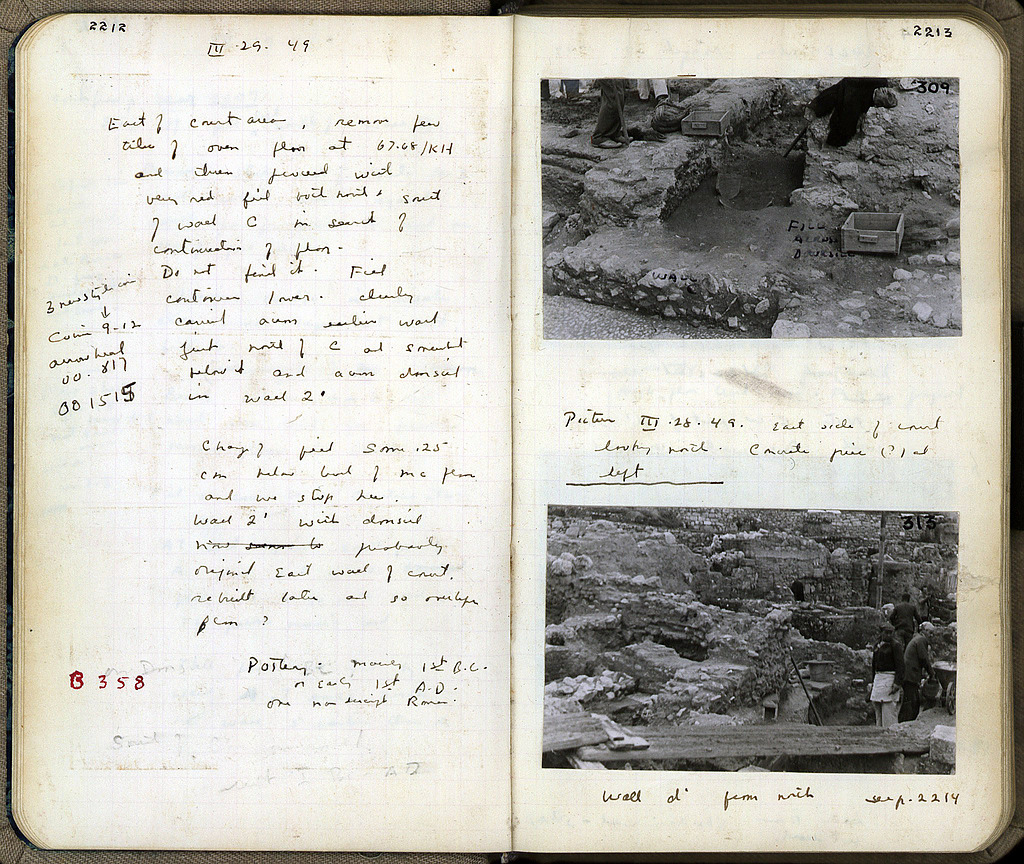 2212
III · 29 · 49
East of court area, remove few
tiles of oven floor at 67.68/KH
and then proceed with
very red fill both north & south
of wall C in search of
continuation of floor.
Do not find it. Fill
continues lower. clearly
3 new style coins
Coin 9-12
arrowhead
00.817
001515
carried across earlier wall
just north of C at
below it and across doorsill
in wall 2'
Change of fill some .25
cm below level of floor
and we stop here.
Wall 2' with doorsill
probably
original East wall of court.
rebuilt later and so overlaps
floor ?
B 358
Pottery. mainly 1st B.C.
or early 1st A.D.
one Roman.
2213
309
FILL
ACROSS
DOORSILL
WALL
Picture III · 28 · 49. East side of court
looking north. Concrete pier (?) at
left
313
Wall d' from north see p. 2214